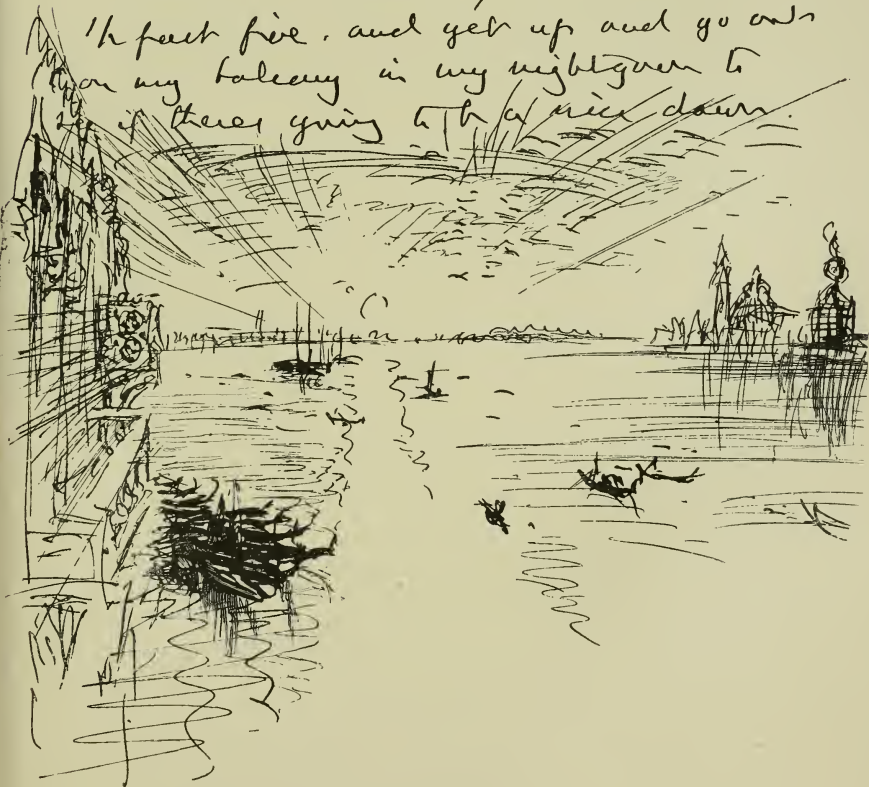 ½ past five. and get up and go out
on my balcony in my nightgown to
see if there's going to be a nice dawn.